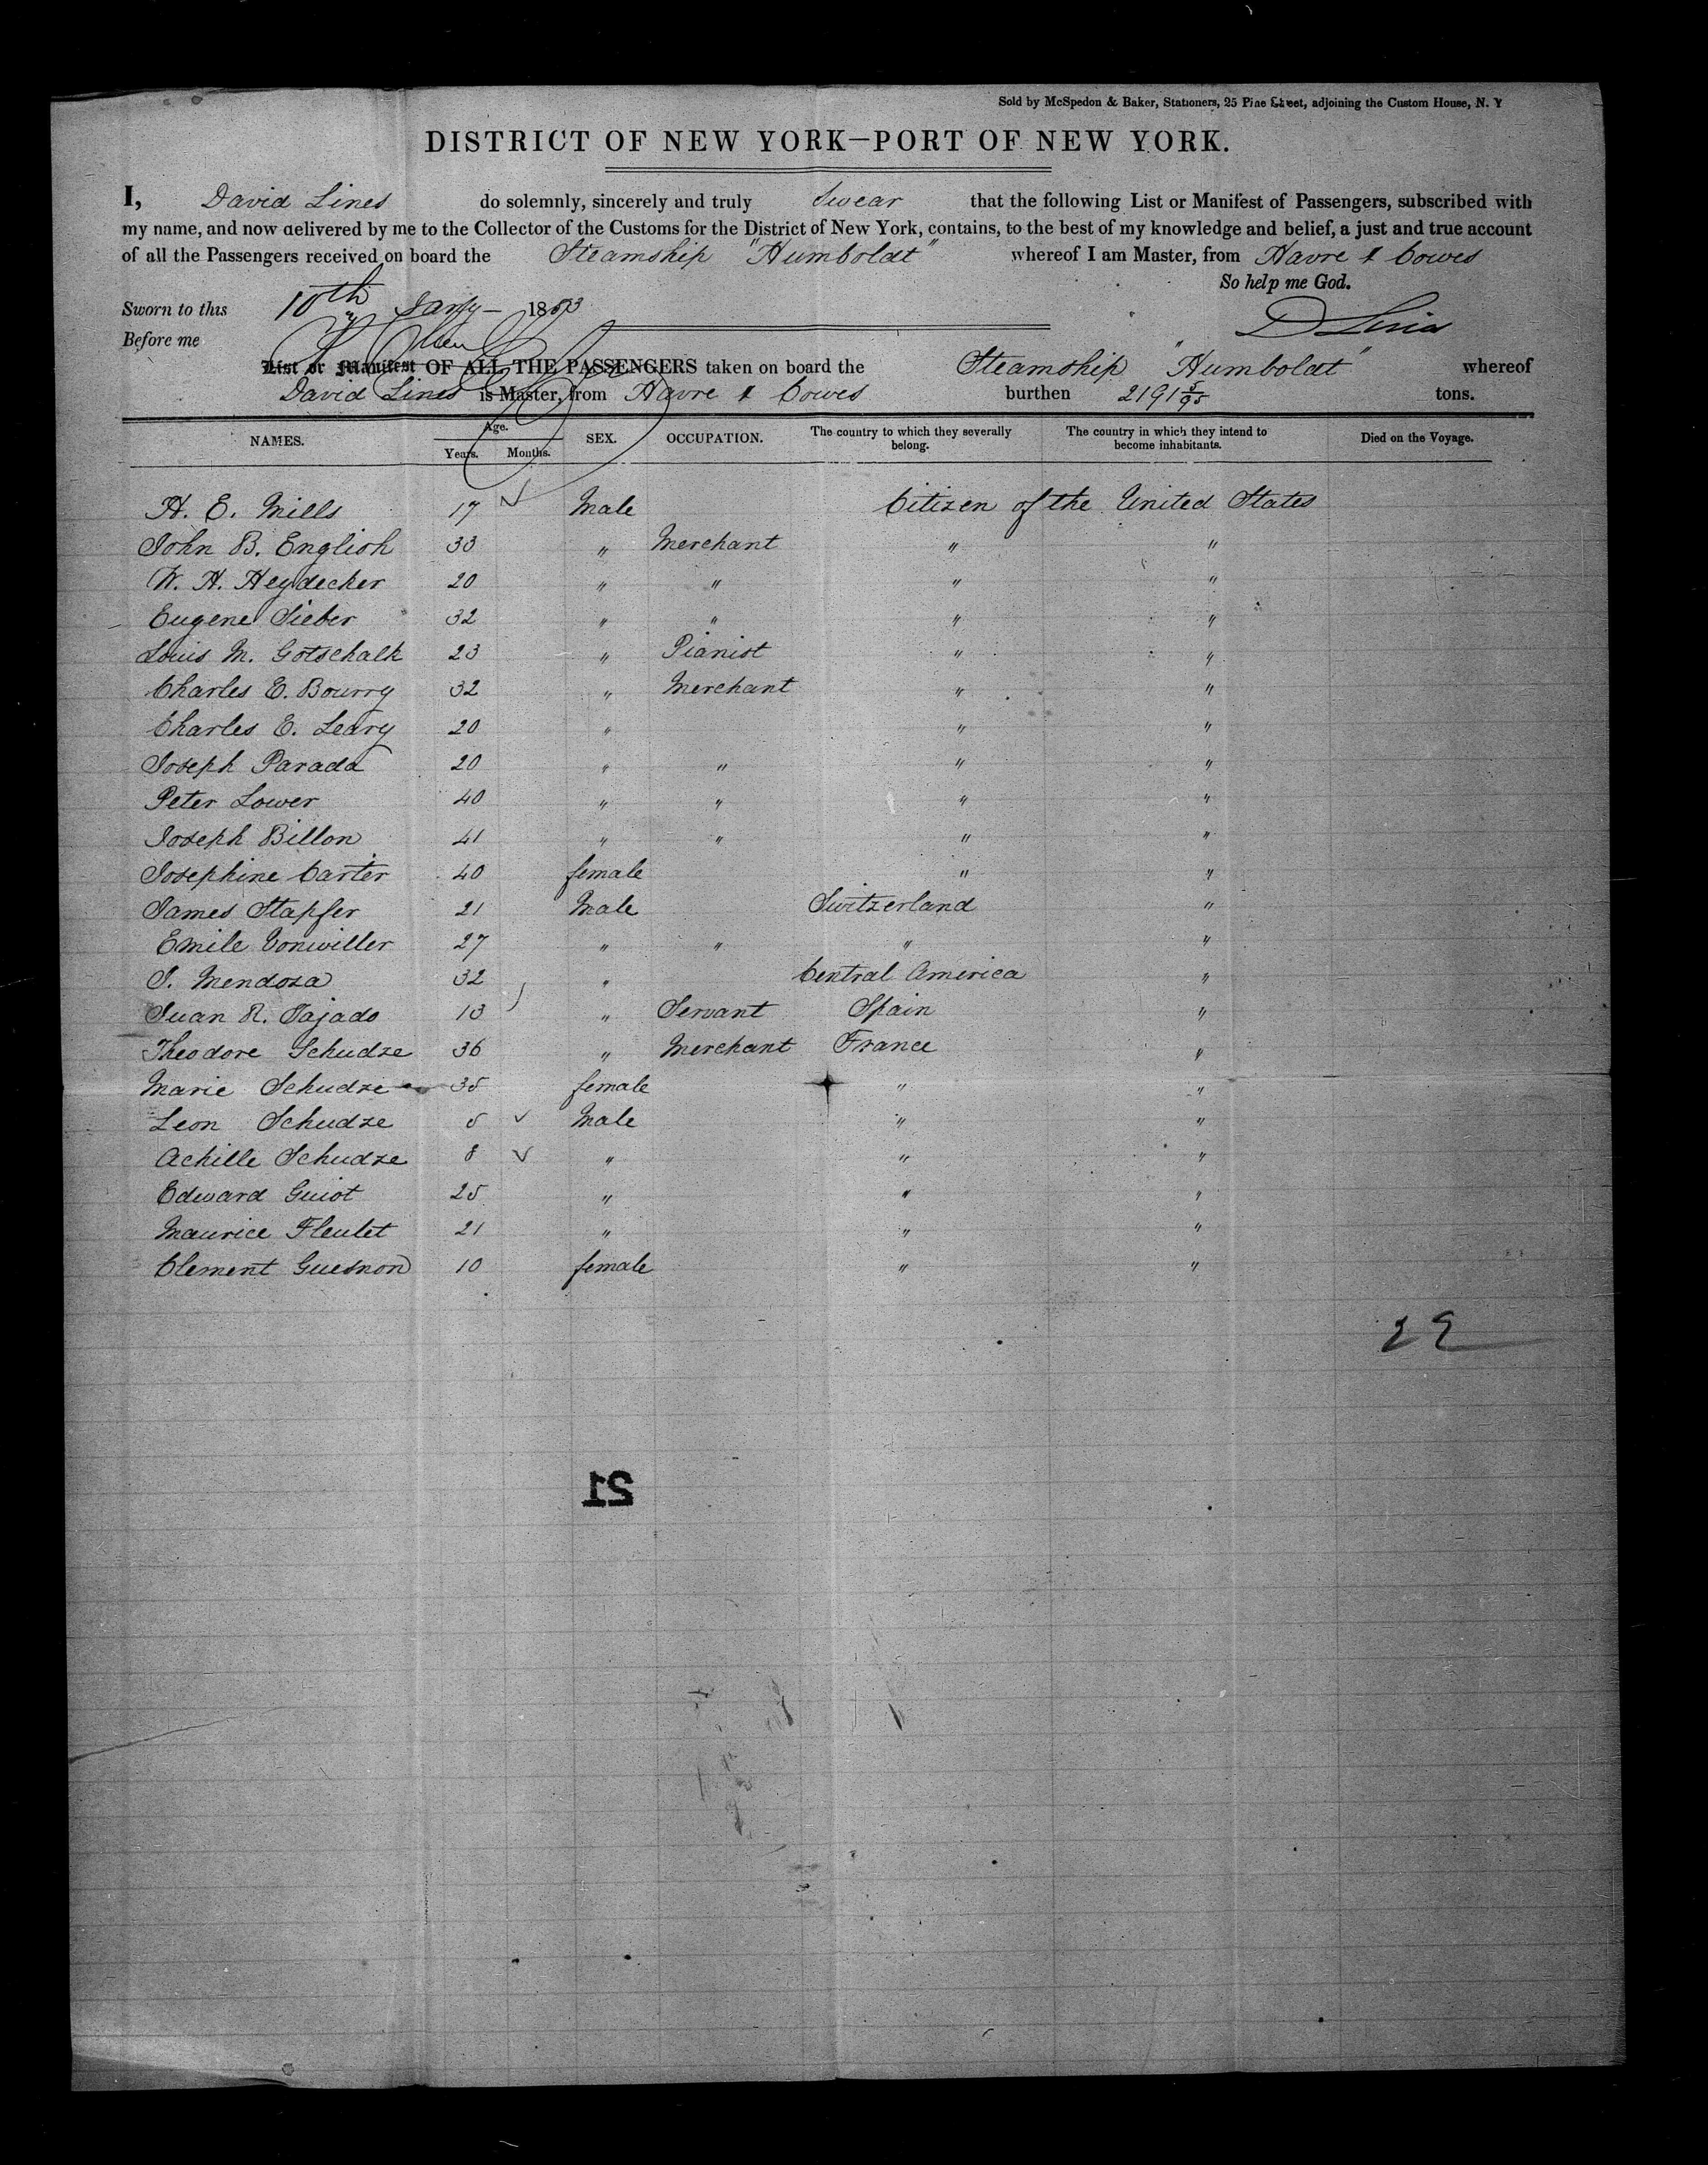 Sold by McSpedon & Baker, Stationers, 25 Pine Street, adjoining the Custom House, N. Y
DISTRICT OF NEW YORK—PORT OF NEW YORK.
I, David Lines do solemnly, sincerely and truly Swear that the following List or Manifest of Passengers, subscribed with
my name, and now delivered by me to the Collector of the Customs for the District of New York, contains, to the best of my knowledge and belief, a just and true account
of all the Passengers received on board the Steamship "Humboldt" whereof I am Master, from Havre & Cowes
So help me God.
Sworn to this 10th Jany 1853
D Lines
Before me
List or Manifest OF ALL THE PASSENGERS taken on board the Steamship "Humboldt" whereof
David Lines is Master, from Havre & Cowes burthen 2191 5/95 tons.
NAMES. Age. Years. Months. SEX. OCCUPATION. The country to which they severally belong. The country in which they intend to become inhabitants. Died on the Voyage.
H. E. Mills 17 ✓ Male Citizen of the United States
John B. English 33 " Merchant " "
W. H. Heydecker 20 " " " "
Eugene Sieber 32 " " " "
Louis M. Gotschalk 23 " Pianist " "
Charles E. Bourry 32 " Merchant " "
Charles E. Leary 20 " " "
Joseph Parada 20 " " " "
Peter Lower 40 " " " "
Joseph Billon 41 " " " "
Josephine Carter 40 female " "
James Stapfer 21 Male Switzerland "
Emile Vonwiller 27 " " " "
S. Mendoza 32 " Central America "
Juan R. Tajado 13 " Servant Spain "
Theodore Schudze 36 " Merchant France "
Marie Schudze 35 female " "
Leon Schudze 5 ✓ Male " "
Achille Schudze 8 ✓ " " "
Edward Guiot 25 " " "
Maurice Fleulet 21 " " "
Clement Guesnon 10 female " "
22
21